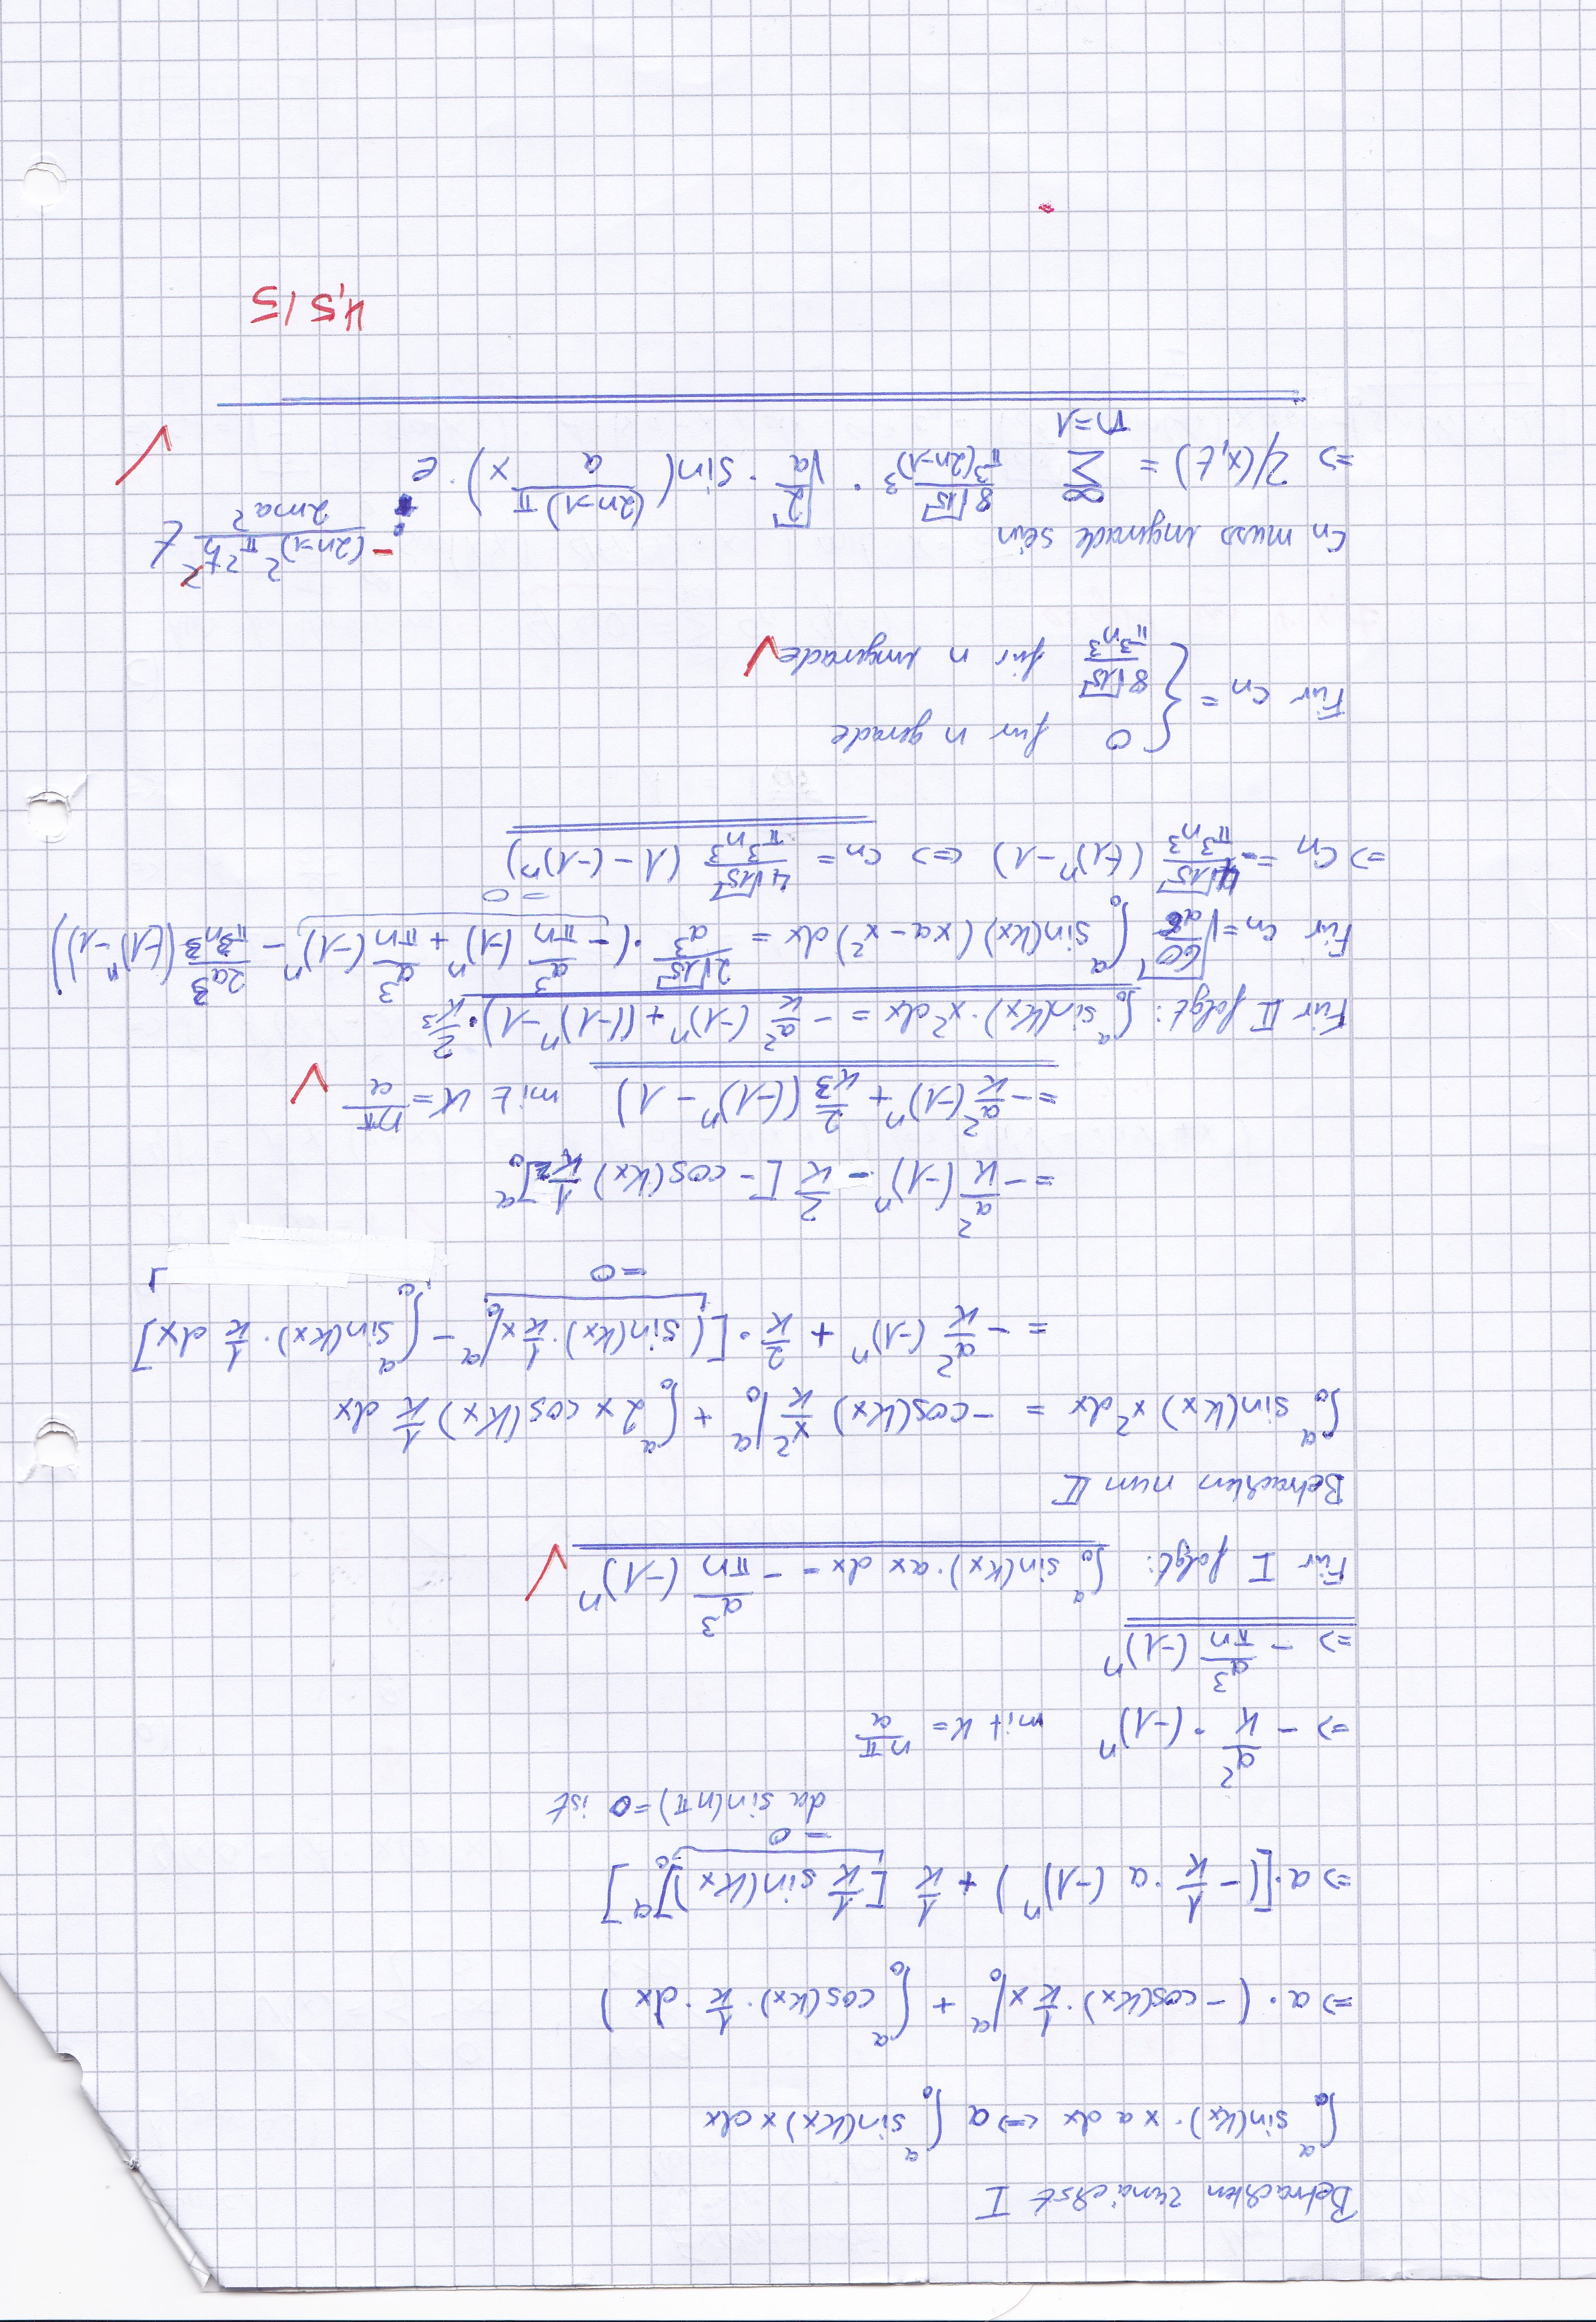 Betrachten zunächst I
∫₀ᵃ sin(kx) · x a dx <=> a ∫₀ᵃ sin(kx) x dx
=> a · ( - cos(kx) · 1/k x |₀ᵃ + ∫₀ᵃ cos(kx) · 1/k · dx )
=> a · [(- 1/k · a (-1)ⁿ ) + 1/k [ 1/k sin(kx) ]₀ᵃ ]
= 0
da sin(nπ) = 0 ist
=> - a²/k · (-1)ⁿ mit k = nπ/a
=> - a³/πn (-1)ⁿ
Für I folgt: ∫₀ᵃ sin(kx) · ax dx = - a³/πn (-1)ⁿ ✓
Betrachten nun II
∫₀ᵃ sin(kx) x² dx = - cos(kx) x²/k |₀ᵃ + ∫₀ᵃ 2x cos(kx) 1/k dx
= - a²/k (-1)ⁿ + 2/k · [( sin(kx) · 1/k x |₀ᵃ - ∫₀ᵃ sin(kx) · 1/k dx ]
= 0
= - a²/k (-1)ⁿ - 2/k [ - cos(kx) 1/k² ]₀ᵃ
= - a²/k (-1)ⁿ + 2/k³ ((-1)ⁿ - 1) mit k = nπ/a ✓
Für II folgt: ∫₀ᵃ sin(kx) · x² dx = - a²/k (-1)ⁿ + ((-1)ⁿ - 1) · 2/k³
Für cₙ = √(60/a⁶) ∫₀ᵃ sin(kx) (xa - x²) dx = 2√15/a³ · ( - a³/πn (-1)ⁿ + a³/πn (-1)ⁿ - 2a³/π³n³ ((-1)ⁿ - 1))
= 0
=> cₙ = - 4√15/π³n³ ((-1)ⁿ - 1) <=> cₙ = 4√15/π³n³ (1 - (-1)ⁿ)
Für cₙ = { 0 für n gerade
8√15/π³n³ für n ungerade ✓
cₙ muss ungerade sein
=> Ψ(x,t) = ∑ₙ₌₁^∞ 8√15/π³(2n-1)³ · √(2/a) · sin( (2n-1)π/a x) · e^(-i (2n-1)² π² ħ²/2ma² t) ✓
4,5 / 5